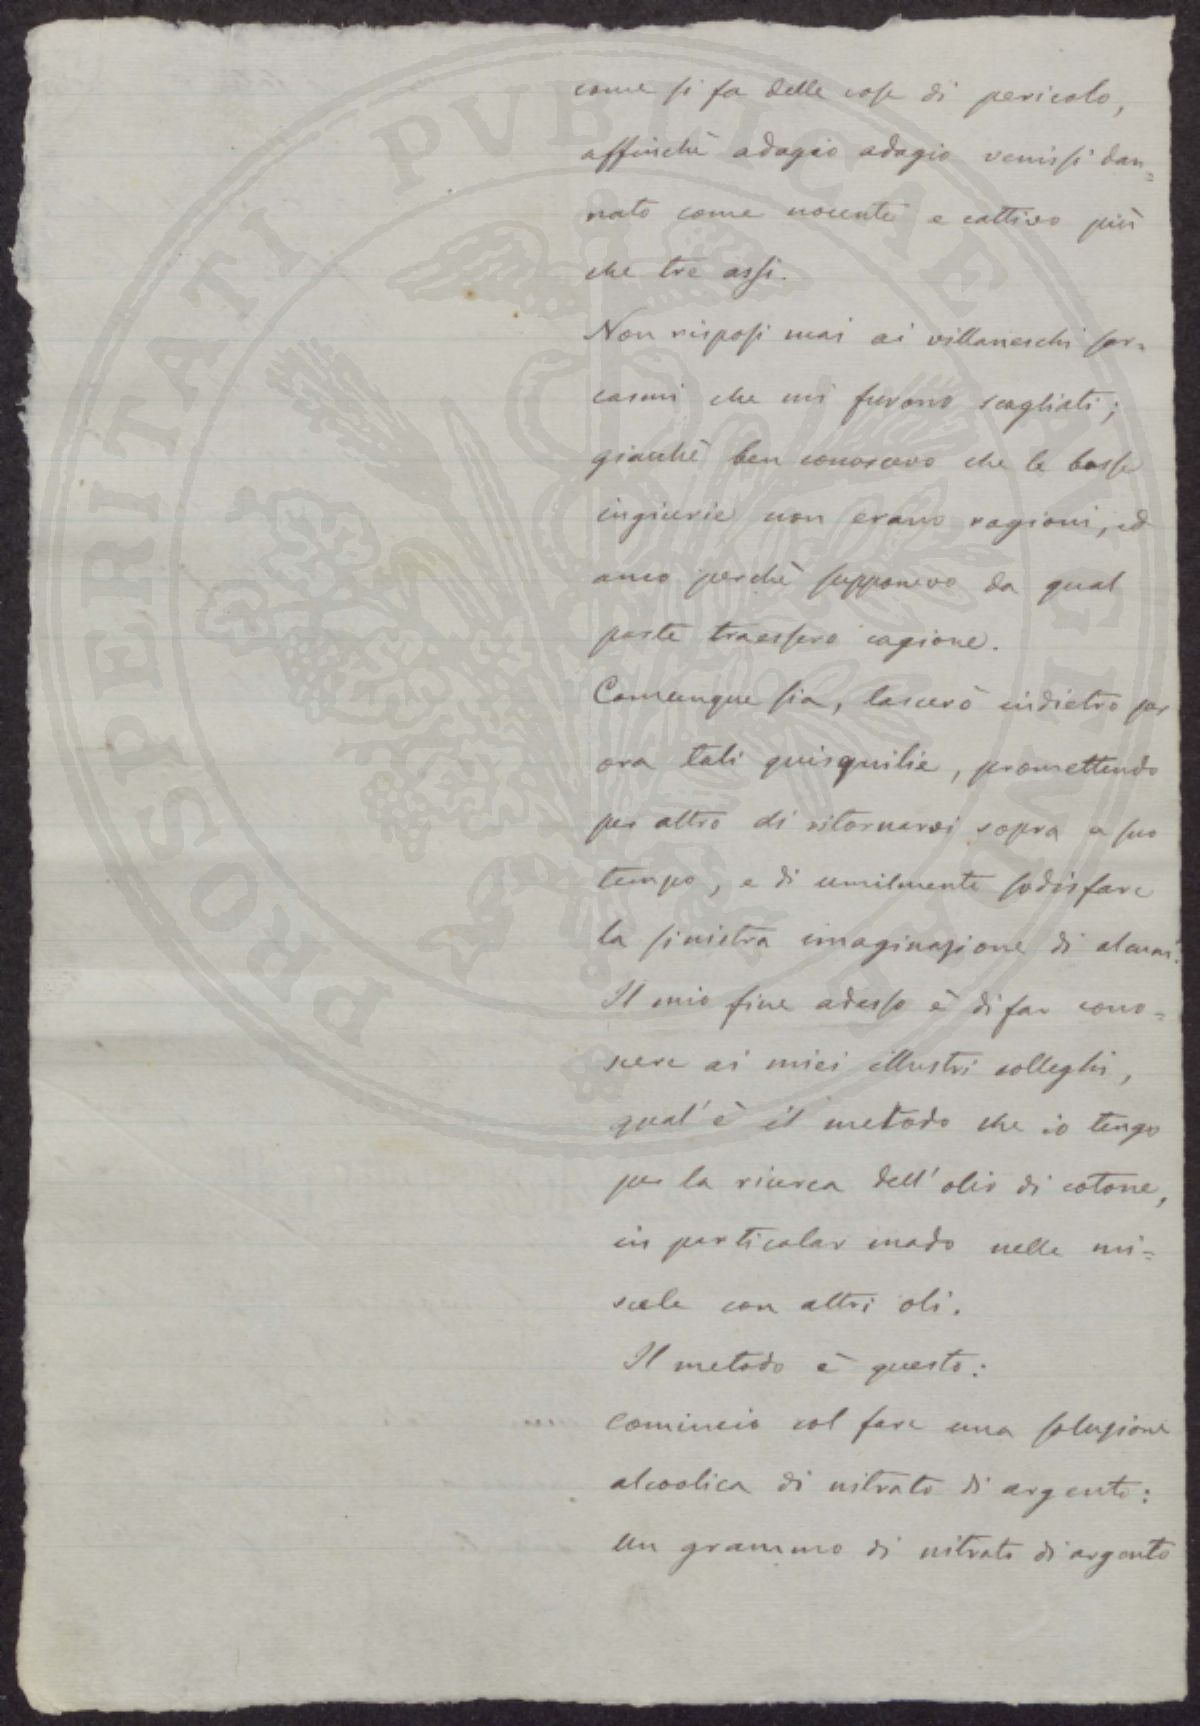 come si fa delle cose di pericolo,
affinchè adagio adagio venissi dan=
nato come nocente e cattivo più
che tre assi.
Non risposi mai ai villaneschi sar=
casmi che mi furono scagliati;
giacchè ben conoscevo che le basse
ingiurie non erano ragioni, ed
anco perchè supponevo da qual
parte traessero cagione.
Comunque sia, lascerò indietro per
ora tali quisquilie, promettendo
per altro di ritornarvi sopra a suo
tempo, e di umilmente sodisfare
la sinistra imaginazione di alcuni.
Il mio fine adesso è di far cono=
scere ai miei illustri colleghi,
qual'è il metodo che io tengo
per la ricerca dell'olio di cotone,
in particolar modo nelle mi=
scele con altri oli.
Il metodo è questo:
Comincio col fare una soluzione
alcoolica di nitrato di argento:
un grammo di nitrato di argento
PROSPERITATI PVBLICAE AVGENDAE